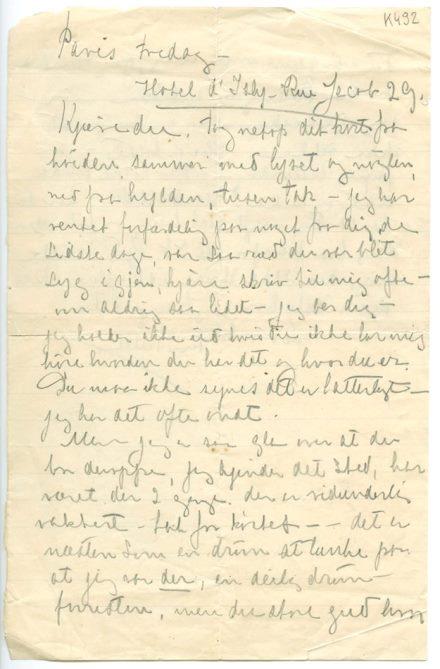 K492
Paris Fredag –
Hotel d'Isly – Rue Jacob 29.
Kjære du. Tog netop dit kort fra
sammen med lyset og nøglen
ned fra hylden, tusen tak – jeg har
ventet forfærdelig paa noget fra dig de
sidste dage, var saa ræd du var blet
syg igjen, kjære skriv til mig ofte –
om aldrig saa lidet – jeg ber dig –
jeg holder ikke ud hvis du ikke lar mig
høre hvordan du har det og hvor du er.
Du maa ikke synes det er latterligt –
jeg har det ofte ondt.
Men jeg er saa gla over at du
bor deroppe, jeg kjender det sted, har
været der 2 gange. der er vidunderlig
vakkert – tak for kortet – – det er
næsten som en drøm at tænke paa
at jeg var der, en deilig drøm –
forresten, men du store gud hvor